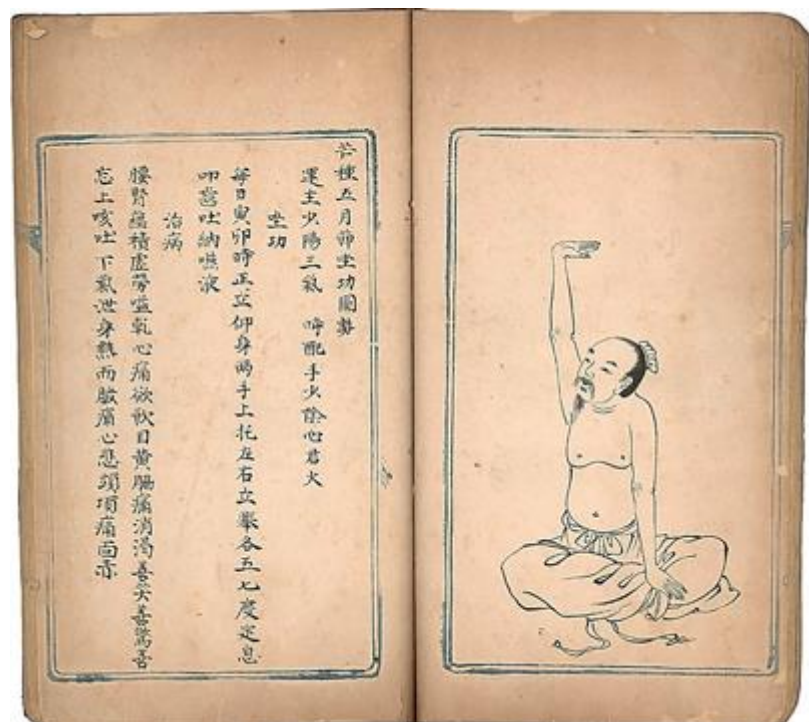 芒種五月節坐功圖勢
運主少陽三氣　時配手少陰心君火
坐功
每日寅卯時正立仰身兩手上托左右立舉各五七度定息
叩齒吐納嚥液
治病
腰腎蘊積虛勞嗌乾心痛欲飲目黃脇痛消渴善笑善驚善
忘上咳吐下氣泄身熱而股痛心悲頭項痛面赤